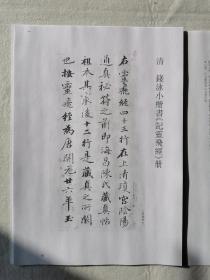 清 錢泳小楷書《記靈飛經》冊
右靈飛經四十三行在上清瓊宮陰陽
通真秘符之前即海昌陳氏藏真帖
祖本其㝡後十二行是藏真之所闕
也按靈飛經為唐開元廿六年玉